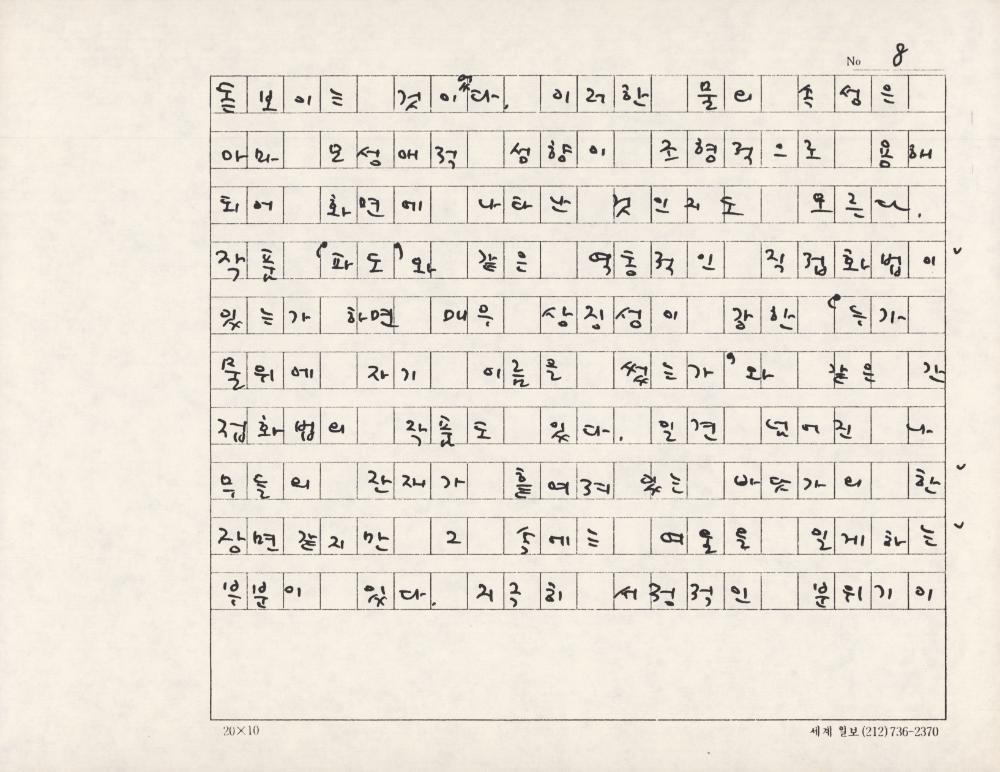 No 8
돋보이는 것이었다. 이러한 물의 속성은
아마 모성애적 성향이 조형적으로 용해
되어 화면에 나타난 것인지도 모른다.
작품 '파도'와 같은 역동적인 직접화법이
있는가 하면 매우 상징성이 강한 '누가
물위에 자기 이름을 썼는가'와 같은 간
접화법의 작품도 있다. 일견 넘어진 나
무들의 잔재가 흩여져 있는 바닷가의 한
장면 같지만 그 속에는 여울을 일게하는
부분이 있다. 지극히 서정적인 분위기이
20×10
세계 일보 (212) 736-2370